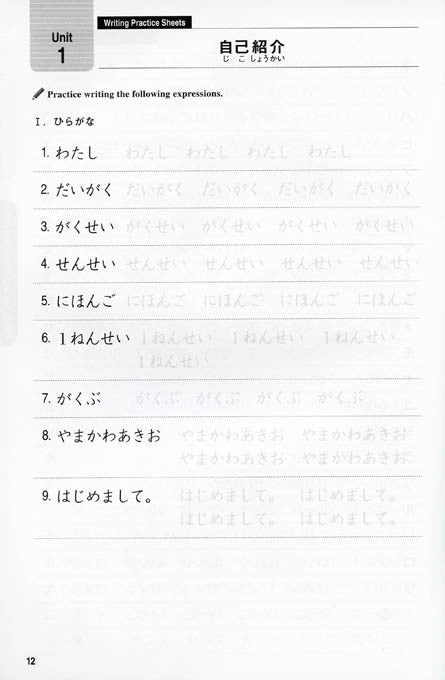 Writing Practice Sheets
Unit
1
自己紹介
じこしょうかい
Practice writing the following expressions.
I. ひらがな
1. わたし わたし わたし わたし わたし
2. だいがく だいがく だいがく だいがく だいがく
3. がくせい がくせい がくせい がくせい がくせい
4. せんせい せんせい せんせい せんせい せんせい
5. にほんご にほんご にほんご にほんご にほんご
6. 1ねんせい 1ねんせい 1ねんせい 1ねんせい
1ねんせい
7. がくぶ がくぶ がくぶ がくぶ がくぶ
8. やまかわあきお やまかわあきお やまかわあきお
やまかわあきお やまかわあきお
9. はじめまして。 はじめまして。 はじめまして。
はじめまして。 はじめまして。
12